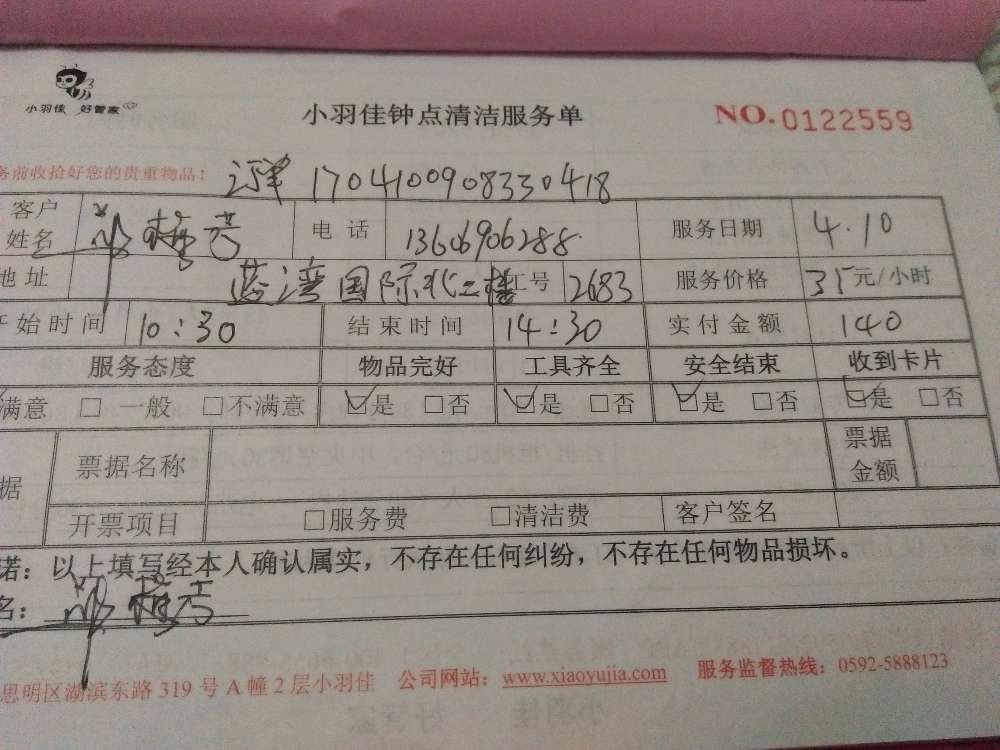 小羽佳 好管家
小羽佳钟点清洁服务单 NO.0122559
务前收拾好您的贵重物品! 订单 1704100908330418
客户姓名 梅芳 电话 13606906288 服务日期 4.10
地址 蓝湾国际北二楼 工号 2683 服务价格 35元/小时
开始时间 10:30 结束时间 14:30 实付金额 140
服务态度 物品完好 工具齐全 安全结束 收到卡片
满意 □ 一般 □不满意 ☑是 □否 ☑是 □否 ☑是 □否 ☑是 □否
据 票据名称 票据金额
开票项目 □服务费 □清洁费 客户签名
诺：以上填写经本人确认属实，不存在任何纠纷，不存在任何物品损坏。
名： 梅芳
思明区湖滨东路 319 号 A 幢 2 层小羽佳 公司网站：www.xiaoyujia.com 服务监督热线：0592-5888123